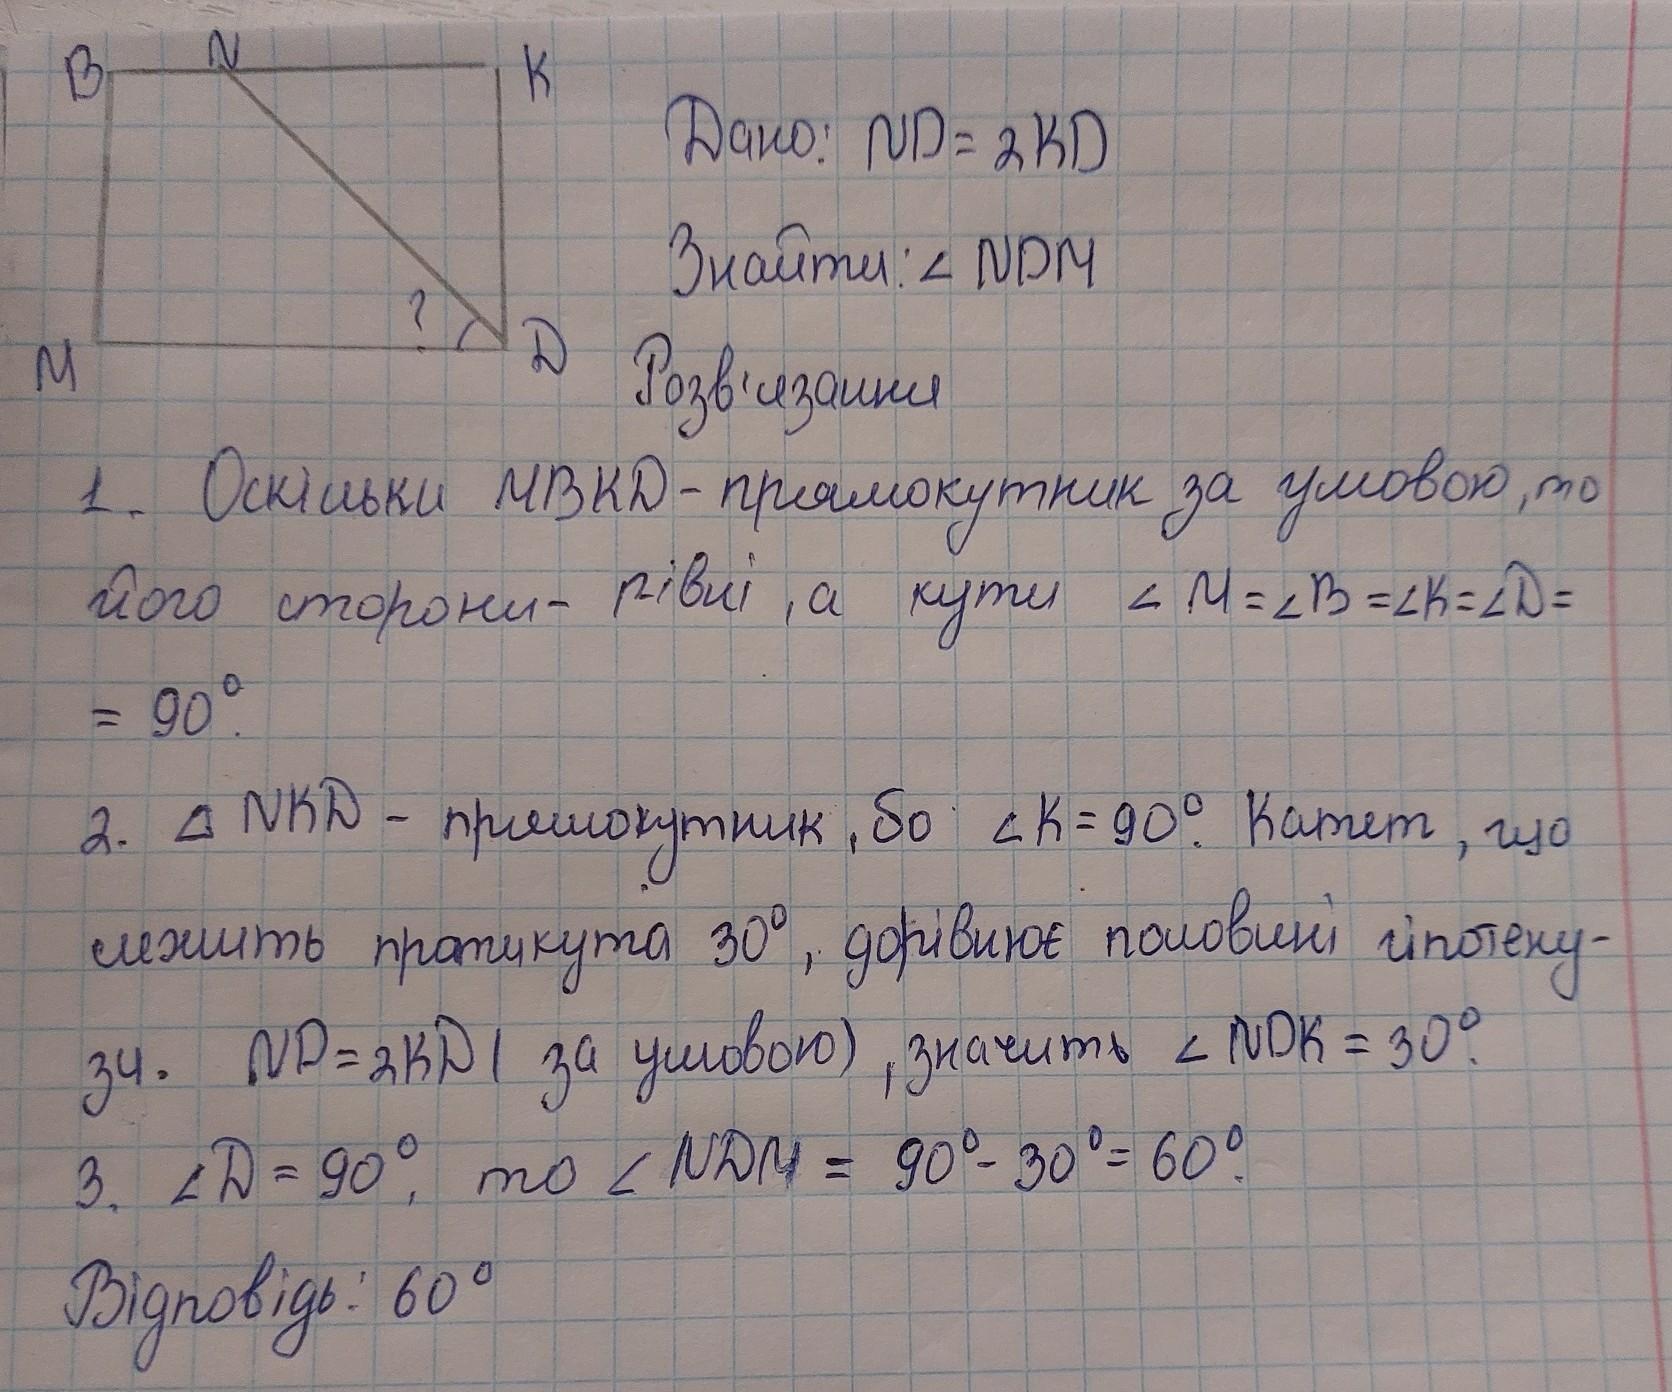 B N K
Дано: ND = 2KD
Знайти: ∠ NDM
? M D
Розв'язання
1. Оскільки MBKD - прямокутник за умовою, то
його сторони - рівні, а кути ∠ M = ∠B = ∠K = ∠D =
= 90°.
2. △ NKD - прямокутник, бо ∠K = 90°. Катет, що
лежить протикута 30°, дорівнює половині гіпотену-
зи. ND = 2KD ( за умовою), значить ∠ NDK = 30°.
3. ∠D = 90°, то ∠ NDM = 90° - 30° = 60°.
Відповідь: 60°